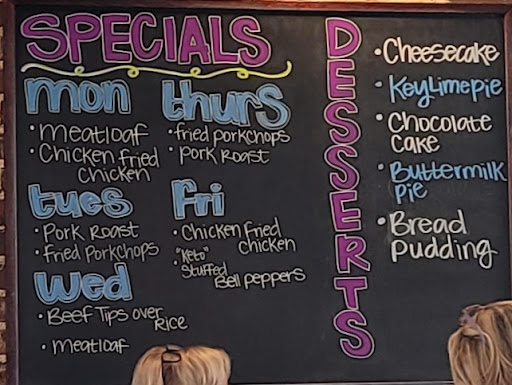 SPECIALS
mon
• meatloaf
• Chicken fried
chicken
tues
• Pork Roast
• Fried Porkchops
Wed
• Beef Tips over
Rice
• meatloaf
thurs
• fried porkchops
• pork Roast
fri
• Chicken fried
chicken
• "Keto"
Stuffed
Bell peppers
DESSERTS
• Cheesecake
• Key Lime pie
• Chocolate
Cake
• Buttermilk
pie
• Bread
Pudding